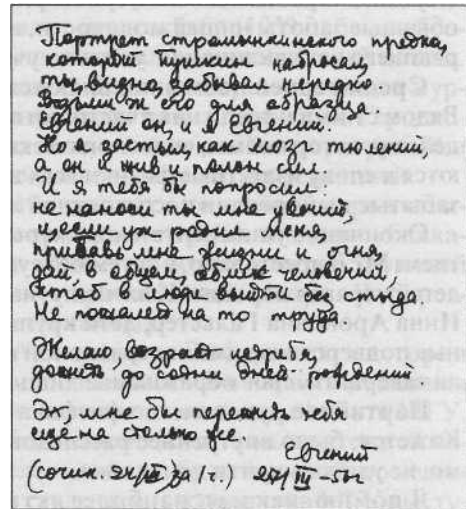 Портрет трагикинечного предка,
который Пушкин набросал,
ты, видно, забывал нередко
Возьми ж его для образца.
Евгений он, и я Евгений.
Но я застыл, как тюлений,
а он и жив и полон сил.
И я тебя бы попросил
не наноси ты мне увечий,
и, если уж родил меня,
прибавь мне жизни и огня
дай в общем, облик человечий,
чтоб в люди выйти без стыда,
Не пожалей на то труда.
Желаю возраст не губя,
дожить до сотни дней рождений
Эх, мне бы пережив тебя
ещё на столько же
Евгений
(сочин. за г.) 27/III-50г